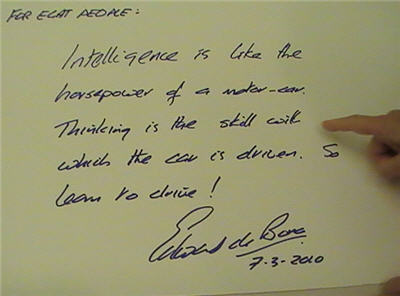 FOR ECAT PEOPLE:
Intelligence is like the
horsepower of a motor-car.
Thinking is the skill with
which the car is driven. So
learn to drive!
Edward de Bono
7-3-2010